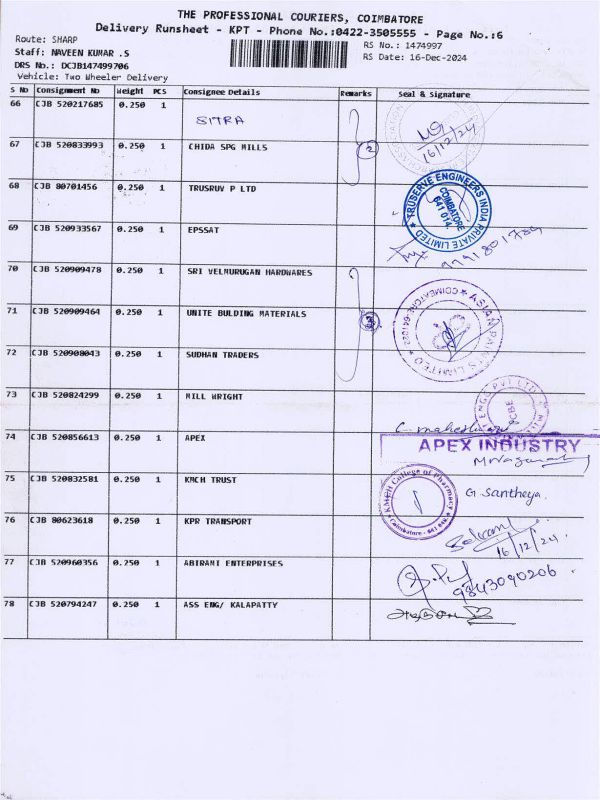 THE PROFESSIONAL COURIERS, COIMBATORE
Delivery Runsheet - KPT - Phone No.:0422-3505555 - Page No.:6
Route: SHARP
RS No.: 1474997
Staff: NAVEEN KUMAR .S
RS Date: 16-Dec-2024
DRS No.: DCJB147499706
Vehicle: Two Wheeler Delivery
S No Consignment No Weight PCS Consignee Details Remarks Seal & Signature
66 CJB 520217685 0.250 1 SITRA 16/12/24
67 CJB 520833993 0.250 1 CHIDA SPG MILLS 2
68 CJB 80701456 0.250 1 TRUSRUV P LTD TRUSERVE ENGINEERS INDIA PRIVATE LIMITED COIMBATORE 641 014
69 CJB 520933567 0.250 1 EPSSAT
70 CJB 520909478 0.250 1 SRI VELMURUGAN HARDWARES
71 CJB 520909464 0.250 1 UNITE BULDING MATERIALS 3 ASIAN PAINTS LIMITED COIMBATORE-641022
72 CJB 520908043 0.250 1 SUDHAN TRADERS
73 CJB 520824299 0.250 1 MILL WRIGHT C. maheshwari
74 CJB 520856613 0.250 1 APEX APEX INDUSTRY
75 CJB 520832581 0.250 1 KMCH TRUST KMCH College of Pharmacy Coimbatore - 641 048 G. Santheya.
76 CJB 80623618 0.250 1 KPR TRANSPORT 16/12/24
77 CJB 520960356 0.250 1 ABIRAMI ENTERPRISES 9843090206
78 CJB 520794247 0.250 1 ASS ENG/ KALAPATTY